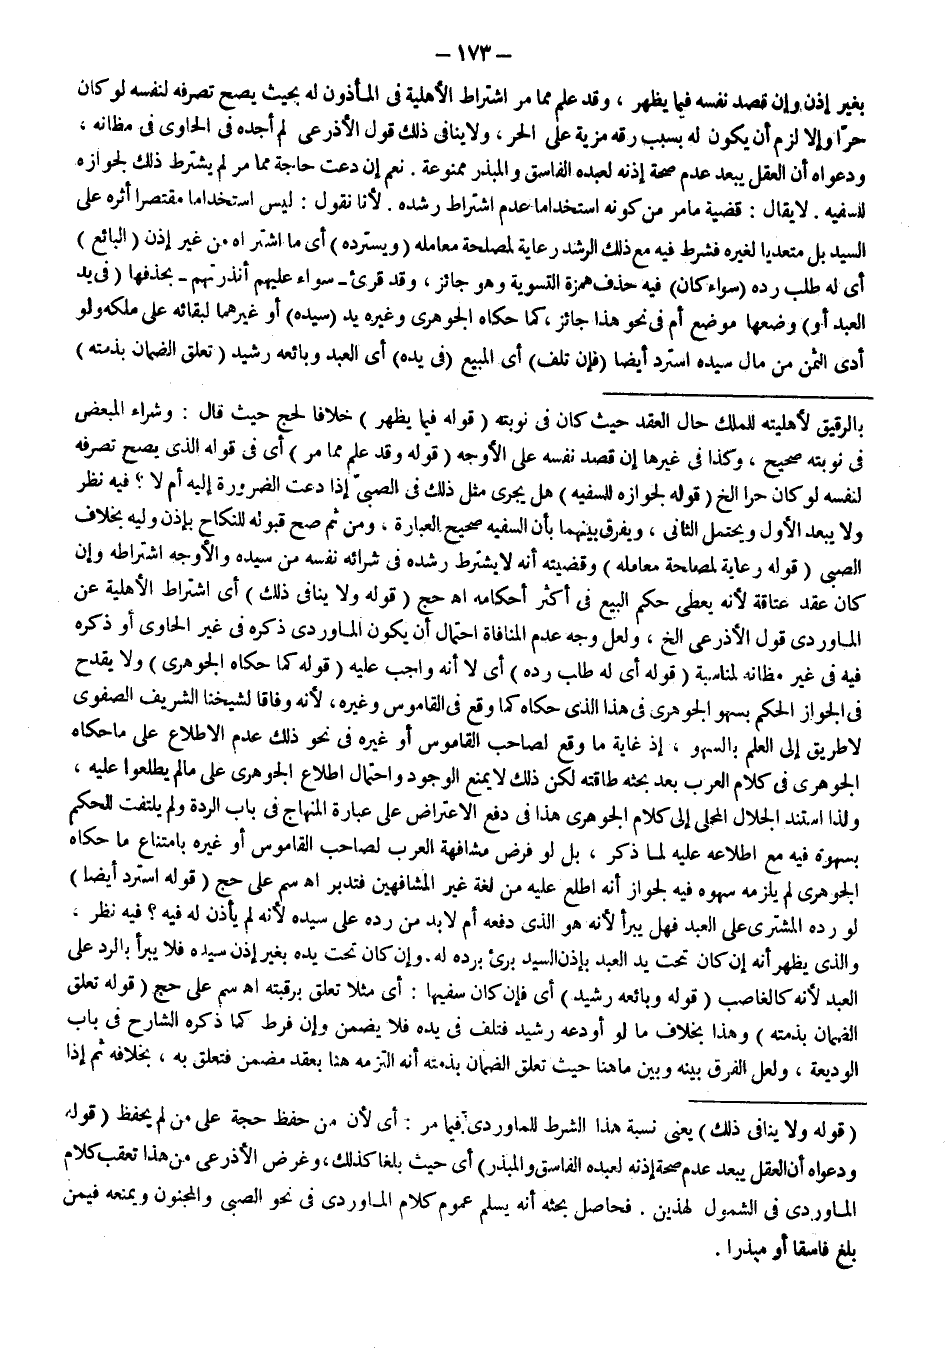 – ١٧٣ –
بغير إذن وإن قصد نفسه فيما يظهر ، وقد علم مما مر اشتراط الأهلية فى المأذون له بحيث يصح تصرفه لنفسه لو كان
حرّا وإلا لزم أن يكون له بسبب رقه مزية على الحر ، ولاينافى ذلك قول الأذرعى لم أجده فى الحاوى فى مظانه ،
ودعواه أن العقل يبعد عدم صحة إذنه لعبده الفاسق والمبذر ممنوعة . نعم إن دعت حاجة مما مر لم يشترط ذلك لجوازه
للسفيه . لايقال : قضية مامر من كونه استخداما عدم اشتراط رشده . لأنا نقول : ليس استخداما مقتصرا أثره على
السيد بل متعديا لغيره فشرط فيه مع ذلك الرشد رعاية لمصلحة معامله ( ويسترده ) أى ما اشتراه من غير إذن ( البائع )
أى له طلب رده (سواء كان) فيه حذف همزة التسوية وهو جائز ، وقد قرئ ـ سواء عليهم أنذرتهم ـ بحذفها ( فى يد
العبد أو) وضعها موضع أم فى نحو هذا جائز ، كما حكاه الجوهرى وغيره يد (سيده) أو غيرهما لبقائه على ملكه ولو
أدى الثمن من مال سيده استرد أيضا (فإن تلف) أى المبيع (فى يده) أى العبد وبائعه رشيد ( تعلق الضمان بذمته )
بالرقيق لأهليته للملك حال العقد حيث كان فى نوبته ( قوله فيما يظهر ) خلافا لحج حيث قال : وشراء المبعض
فى نوبته صحيح ، وكذا فى غيرها إن قصد نفسه على الأوجه ( قوله وقد علم مما مر ) أى فى قوله الذى يصح تصرفه
لنفسه لو كان حرا الخ ( قوله لجوازه للسفيه ) هل يجرى مثل ذلك فى الصبىّ إذا دعت الضرورة إليه أم لا ؟ فيه نظر
ولا يبعد الأول ويحتمل الثانى ، ويفرق بينهما بأن السفيه صحيح العبارة ، ومن ثم صح قبوله للنكاح بإذن وليه بخلاف
الصبى ( قوله رعاية لمصلحة معامله ) وقضيته أنه لايشترط رشده فى شرائه نفسه من سيده والأوجه اشتراطه وإن
كان عقد عتاقة لأنه يعطى حكم البيع فى أكثر أحكامه اه حج ( قوله ولا ينافى ذلك ) أى اشتراط الأهلية عن
الماوردى قول الأذرعى الخ ، ولعل وجه عدم المنافاة احتمال أن يكون الماوردى ذكره فى غير الحاوى أو ذكره
فيه فى غير مظانه لمناسبة ( قوله أى له طلب رده ) أى لا أنه واجب عليه ( قوله كما حكاه الجوهرى ) ولا يقدح
فى الجواز الحكم بسهو الجوهرى فى هذا الذى حكاه كما وقع فى القاموس وغيره ، لأنه وفاقا لشيخنا الشريف الصفوى
لاطريق إلى العلم بالسهو ، إذ غاية ما وقع لصاحب القاموس أو غيره فى نحو ذلك عدم الاطلاع على ماحكاه
الجوهرى فى كلام العرب بعد بحثه طاقته لكن ذلك لايمنع الوجود واحتمال اطلاع الجوهرى على مالم يطلعوا عليه ،
ولذا استند الجلال المحلى إلى كلام الجوهرى هذا فى دفع الاعتراض على عبارة المنهاج فى باب الردة ولم يلتفت للحكم
بسهوه فيه مع اطلاعه عليه لما ذكر ، بل لو فرض مشافهة العرب لصاحب القاموس أو غيره بامتناع ما حكاه
الجوهرى لم يلزمه سهوه فيه لجواز أنه اطلع عليه من لغة غير المشافهين فتدبر اه سم على حج ( قوله استرد أيضا )
لو رده المشترى على العبد فهل يبرأ لأنه هو الذى دفعه أم لابد من رده على سيده لأنه لم يأذن له فيه ؟ فيه نظر ،
والذى يظهر أنه إن كان تحت يد العبد بإذن السيد برئ برده له . وإن كان تحت يده بغير إذن سيده فلا يبرأ بالرد على
العبد لأنه كالغاصب ( قوله وبائعه رشيد ) أى فإن كان سفيها : أى مثلا تعلق برقبته اه سم على حج ( قوله تعلق
الضمان بذمته ) وهذا بخلاف ما لو أودعه رشيد فتلف فى يده فلا يضمن وإن فرط كما ذكره الشارح فى باب
الوديعة ، ولعل الفرق بينه وبين ماهنا حيث تعلق الضمان بذمته أنه التزمه هنا بعقد مضمن فتعلق به ، بخلافه ثم إذا
( قوله ولا ينافى ذلك ) يعنى نسبة هذا الشرط للماوردى فيما مر : أى لأن من حفظ حجة على من لم يحفظ ( قوله
ودعواه أن العقل يبعد عدم صحة إذنه لعبده الفاسق والمبذر) أى حيث بلغا كذلك ، وغرض الأذرعى من هذا تعقب كلام
الماوردى فى الشمول لهذين . فحاصل بحثه أنه يسلم عموم كلام الماوردى فى نحو الصبى والمجنون ويمنعه فيمن
بلغ فاسقا أو مبذرا .